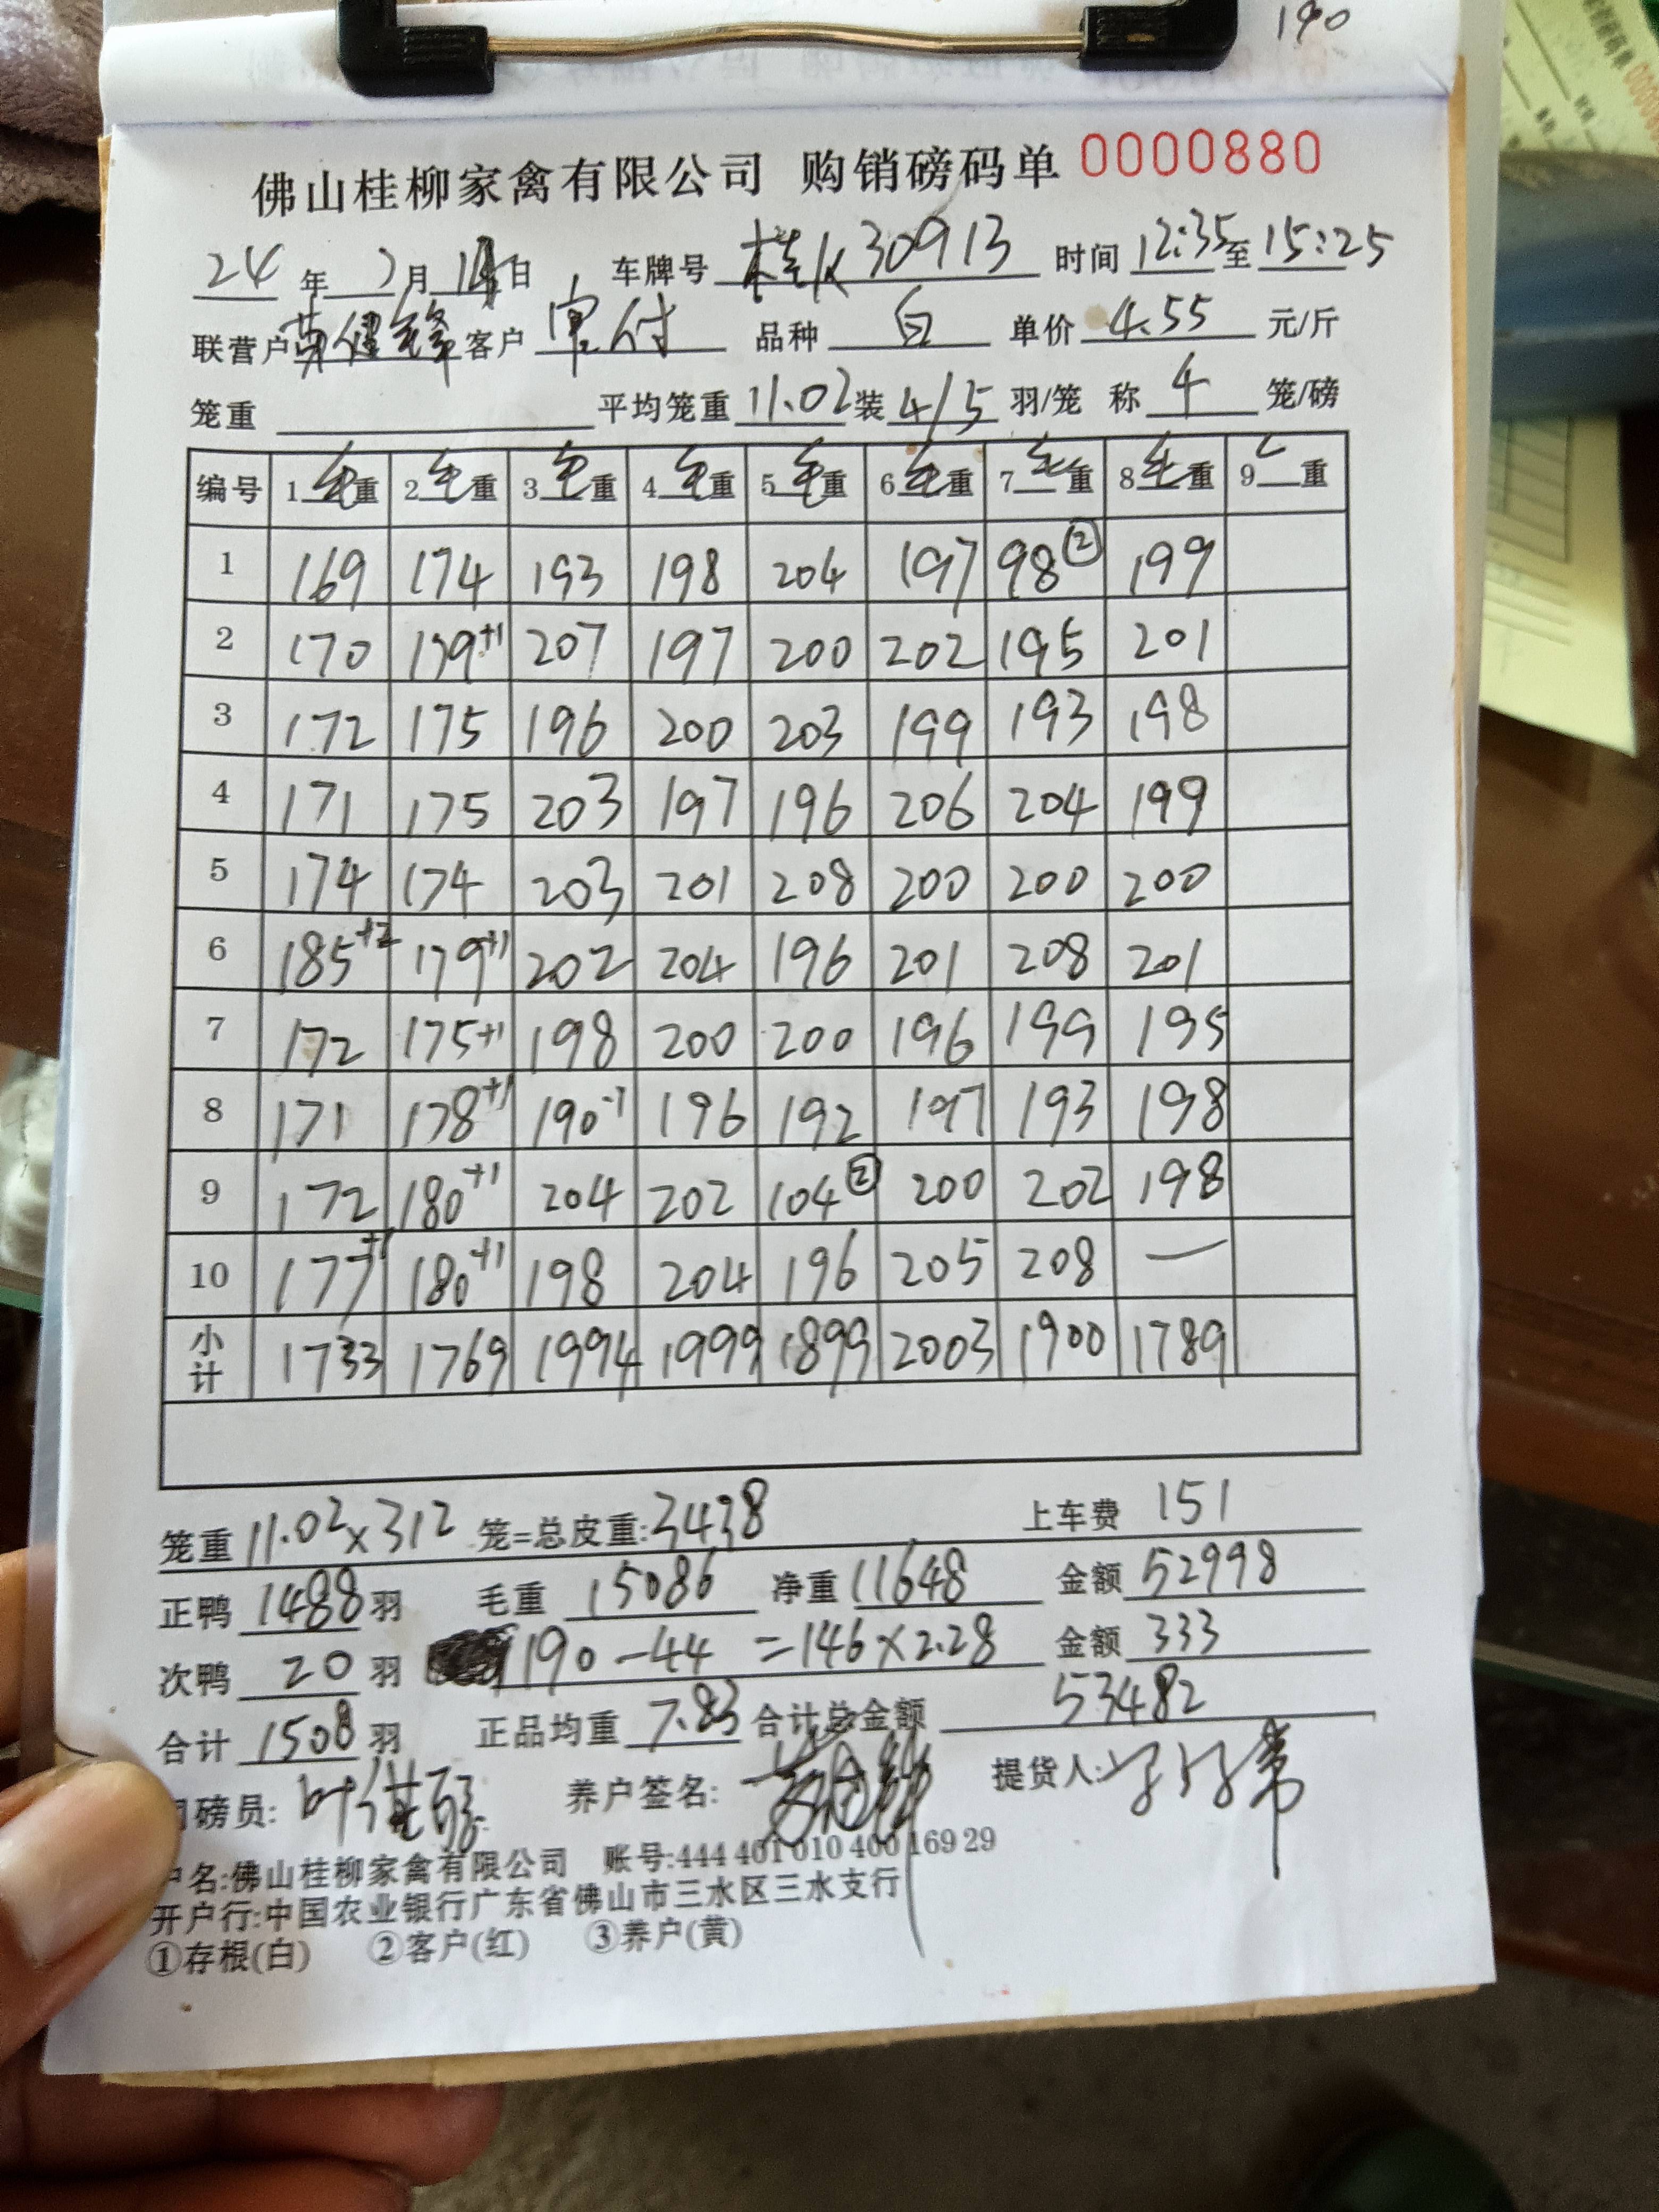 190
佛山桂柳家禽有限公司 购销磅码单 0000880
24 年 7 月 日 车牌号 桂K30913 时间 12:35 至 15:25
联营户 客户 单付 品种 白 单价 4.55 元/斤
笼重 平均笼重 11.02 装 4/5 羽/笼 称 4 笼/磅
编号 1毛重 2毛重 3毛重 4毛重 5毛重 6毛重 7毛重 8毛重 9 重
1 169 174 193 198 204 197 98② 199
2 170 179+1 207 197 200 202 195 201
3 172 175 196 200 203 199 193 198
4 171 175 203 197 196 206 204 199
5 174 174 203 201 208 200 200 200
6 185+2 179+1 202 204 196 201 208 201
7 172 175+1 198 200 200 196 199 195
8 171 178+1 190-1 196 192 197 193 198
9 172 180+1 204 202 104② 200 202 198
10 177+1 180+1 198 204 196 205 208 —
小计 1733 1769 1994 1999 1899 2003 1900 1789
笼重 11.02×312 笼=总皮重:3438 上车费 151
正鸭 1488 羽 毛重 15086 净重 11648 金额 52998
次鸭 20 羽 190-44=146×2.28 金额 333
合计 1508 羽 正品均重 7.83 合计总金额 53482
磅员: 养户签名: 提货人:
户名:佛山桂柳家禽有限公司 账号:444 401 010 400 169 29
开户行:中国农业银行广东省佛山市三水区三水支行
①存根(白) ②客户(红) ③养户(黄)